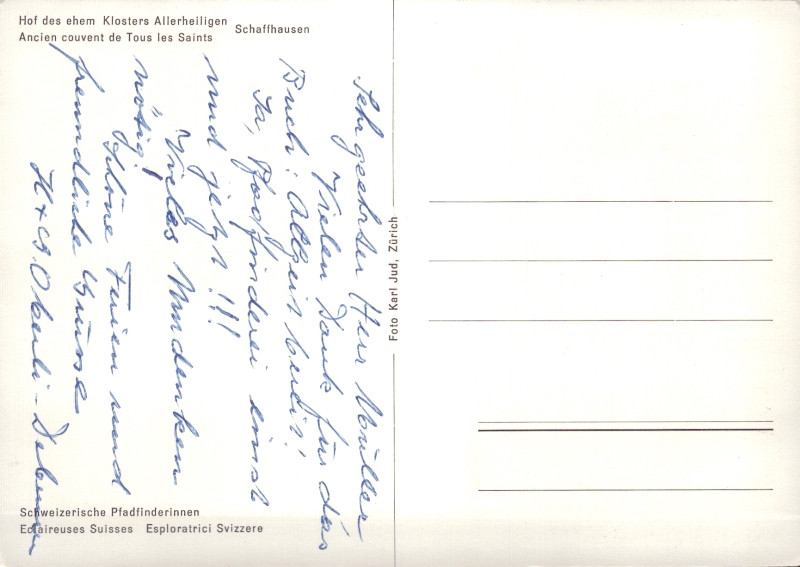 Hof des ehem Klosters Allerheiligen
Ancien couvent de Tous les Saints
Schaffhausen
Sehr geehrter Herr Müller
Vielen Dank für das
Buch: Allzeit bereit!
Ja, Pfadfinderei einst
und jetzt!!!
Vieles Umdenken
nötig!
Schöne Ferien und
freundliche Grüsse
H + G. Oberli-
Foto Karl Jud, Zürich
Schweizerische Pfadfinderinnen
Eclaireuses Suisses Esploratrici Svizzere